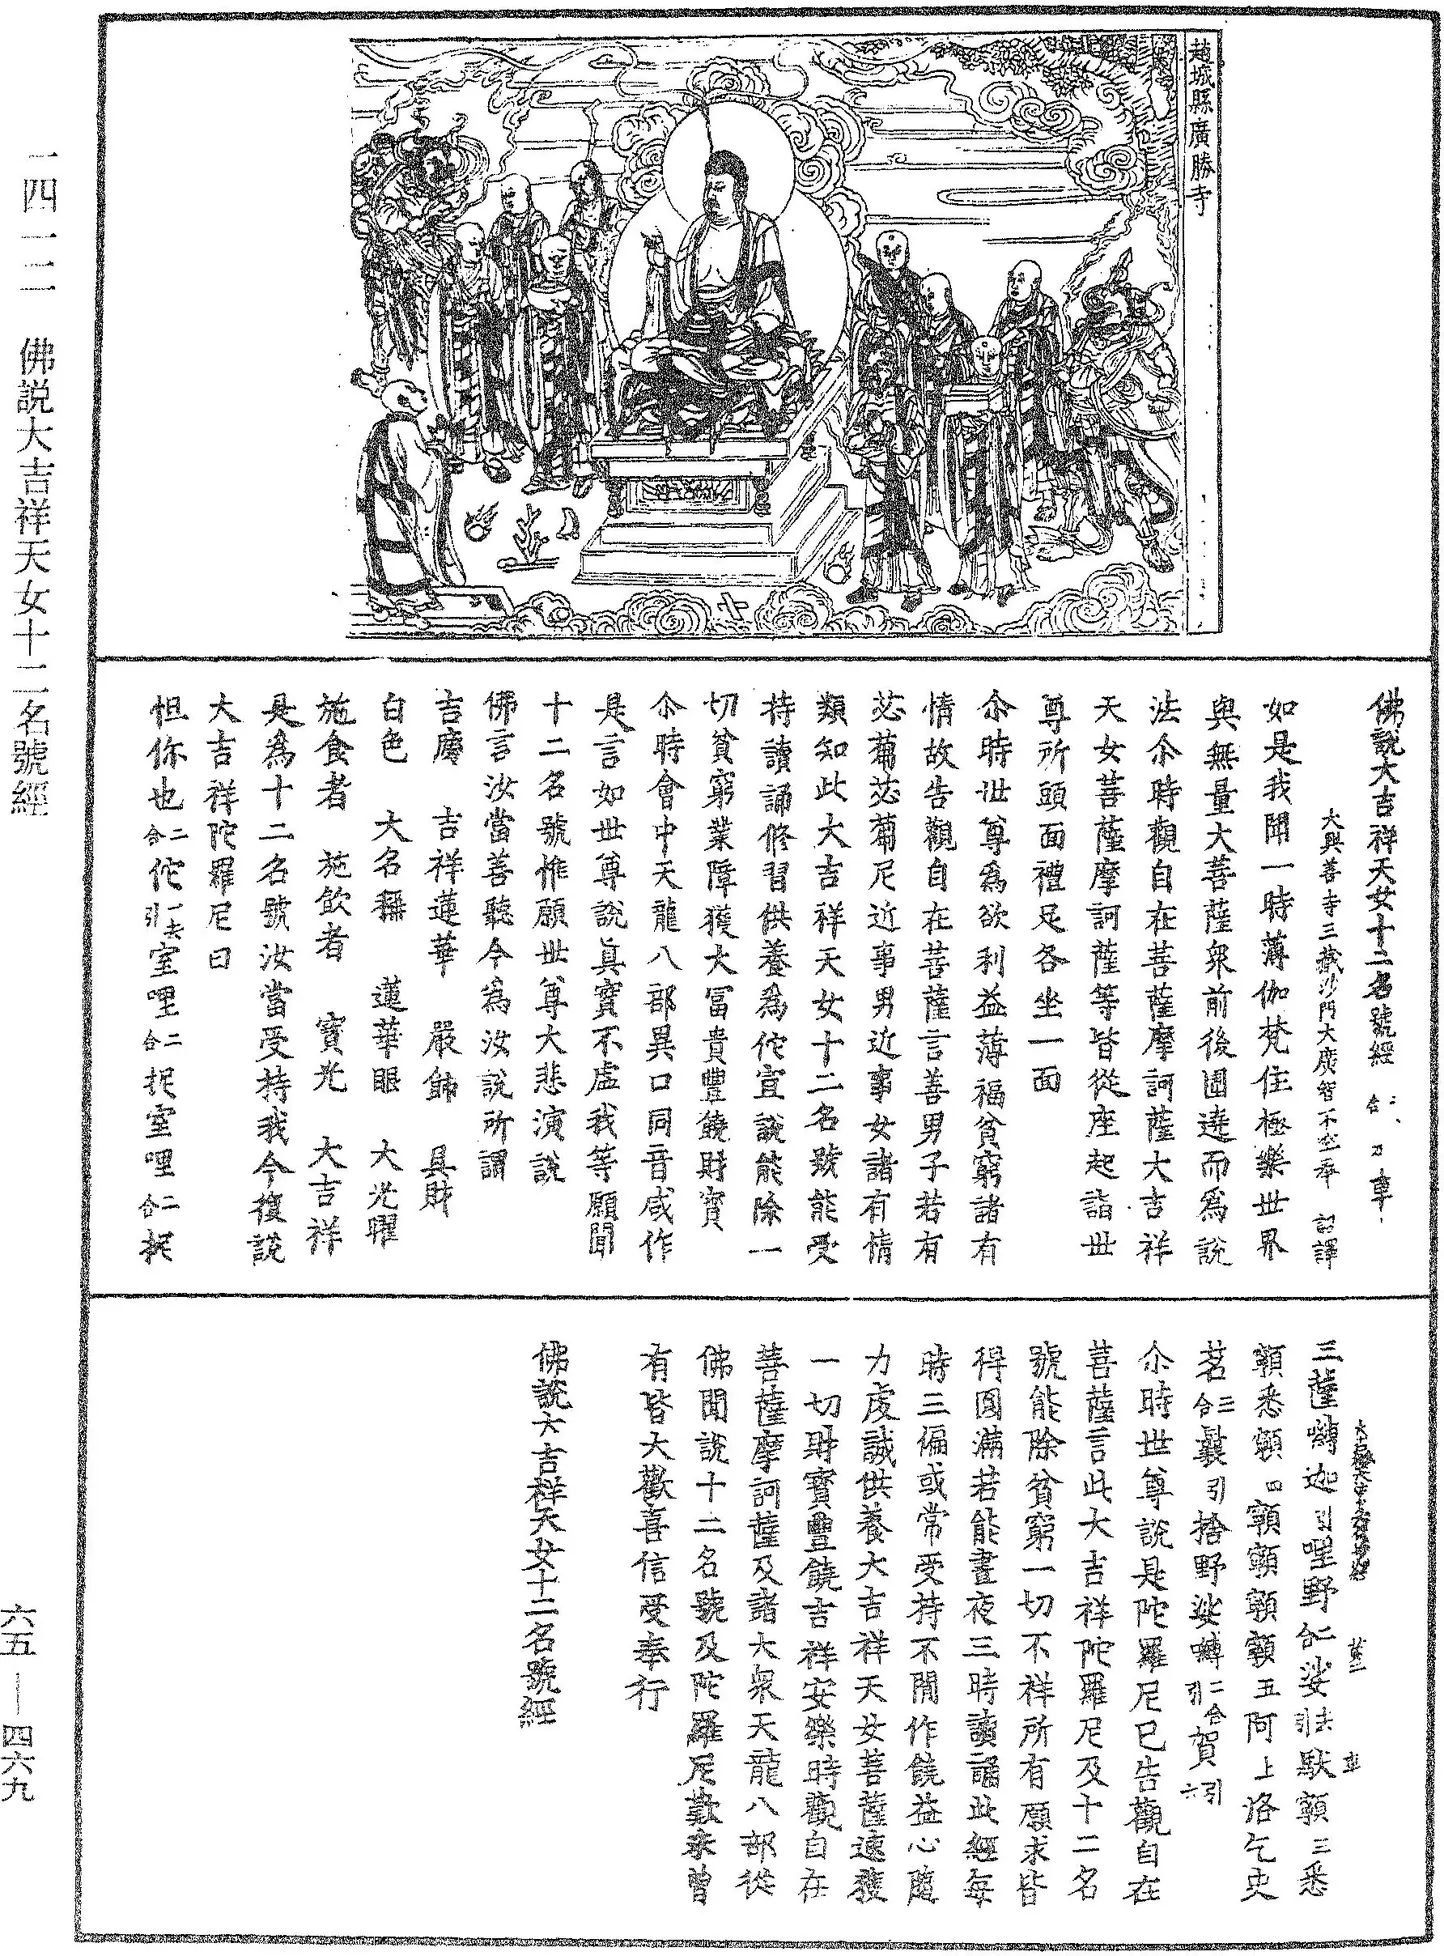 趙城縣廣勝寺
佛説大吉祥天女十二名號經
大興善寺三藏沙門大廣智不空奉 詔譯
如是我聞一時薄伽梵住極樂世界
與無量大菩薩衆前後圍遶而爲説
法尒時觀自在菩薩摩訶薩大吉祥
天女菩薩摩訶薩等皆從座起詣世
尊所頭面禮足各坐一面
尒時世尊爲欲利益薄福貧窮諸有
情故告觀自在菩薩言善男子若有
苾蒭苾蒭尼近事男近事女諸有情
類知此大吉祥天女十二名號能受
持讀誦修習供養爲佗宣説能除一
切貧窮業障獲大冨貴豐饒財寶
尒時會中天龍八部異口同音咸作
是言如世尊説真實不虛我等願聞
十二名號惟願世尊大悲演説
佛言汝當善聽今爲汝説所謂
吉慶 吉祥蓮華 嚴飾 具財
白色 大名稱 蓮華眼 大光曜
施食者 施飲者 寶光 大吉祥
是爲十二名號汝當受持我今復説
大吉祥陀羅尼曰
怛你也二合佗一去引室哩二合抳室哩二合抳
三薩嚩迦引哩野二合娑去引馱顊三悉
顊悉顊四顊顊顊顊五阿上洛乞史
茗三合曩引捨野娑嚩二合引賀引六
尒時世尊説是陀羅尼已告觀自在
菩薩言此大吉祥陀羅尼及十二名
號能除貧窮一切不祥所有願求皆
得圓滿若能晝夜三時讀誦此經每
時三徧或常受持不間作饒益心隨
力虔誠供養大吉祥天女菩薩速獲
一切財寶豐饒吉祥安樂時觀自在
菩薩摩訶薩及諸大衆天龍八部從
佛聞説十二名號及陀羅尼歎未曾
有皆大歡喜信受奉行
佛説大吉祥天女十二名號經
一四一二 佛説大吉祥天女十二名號經
六五—四六九